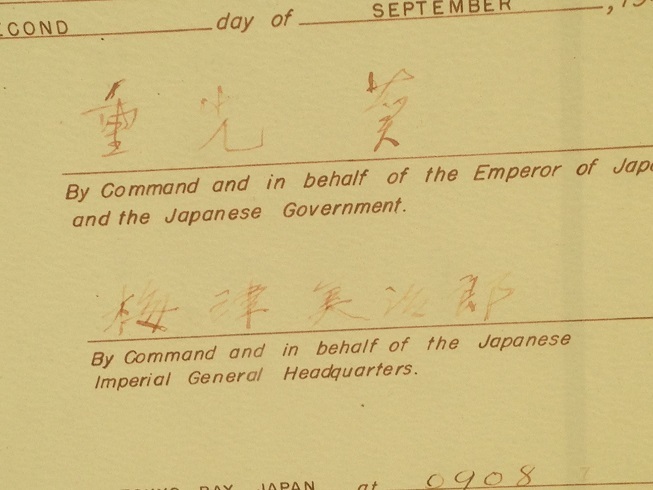 day of SEPTEMBER
重光 葵
By Command and in behalf of the Emperor of
and the Japanese Government.
梅津美治郎
By Command and in behalf of the Japanese
Imperial General Headquarters.
BAY, JAPAN at 0908